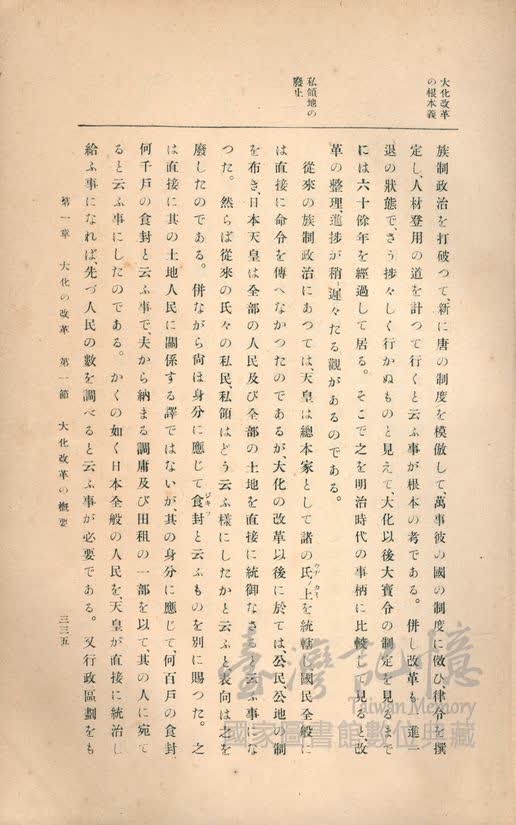 大化改革
の根本義
私領地の
廢止
族制政治を打破つて、新に唐の制度を模倣して、萬事彼の國の制度に倣ひ律令を撰
定し、人材登用の道を計つて行くと云ふ事が根本の考である。併し改革も一進一
退の狀態で、さう捗々しく行かぬものと見えて、大化以後大寶令の制定を見るまで
には六十餘年を經過して居る。そこで之を明治時代の事柄に比較して見ると、改
革の整理、進捗が稍〻遲々たる觀があるのである。
從來の族制政治にあつては、天皇は總本家として諸の氏上を統轄し、國民全般に
は直接に命令を傳へなかつたのであるが、大化の改革以後に於ては、公民公地の制
を布き、日本天皇は全部の人民及び全部の土地を直接に統御なさると云ふ事にな
つた。然らば從來の氏々の私民、私領はどう云ふ樣にしたかと云ふと表向は之を
廢したのである。併ながら尙ほ身分に應じて食封と云ふものを別に賜つた。之
は直接に其の土地人民に關係する譯ではないが、其の身分に應じて、何百戶の食封、
何千戶の食封と云ふ事で、夫から納まる調庸及び田租の一部を以て、其の人に宛て
ると云ふ事にしたのである。かくの如く日本全般の人民を、天皇が直接に統治し
給ふ事になれば、先づ人民の數を調べると云ふ事が必要である。又行政區劃をも
第一章 大化の改革 第一節 大化改革の槪要
三三五
臺灣記憶
Taiwan Memory
國家圖書館數位典藏